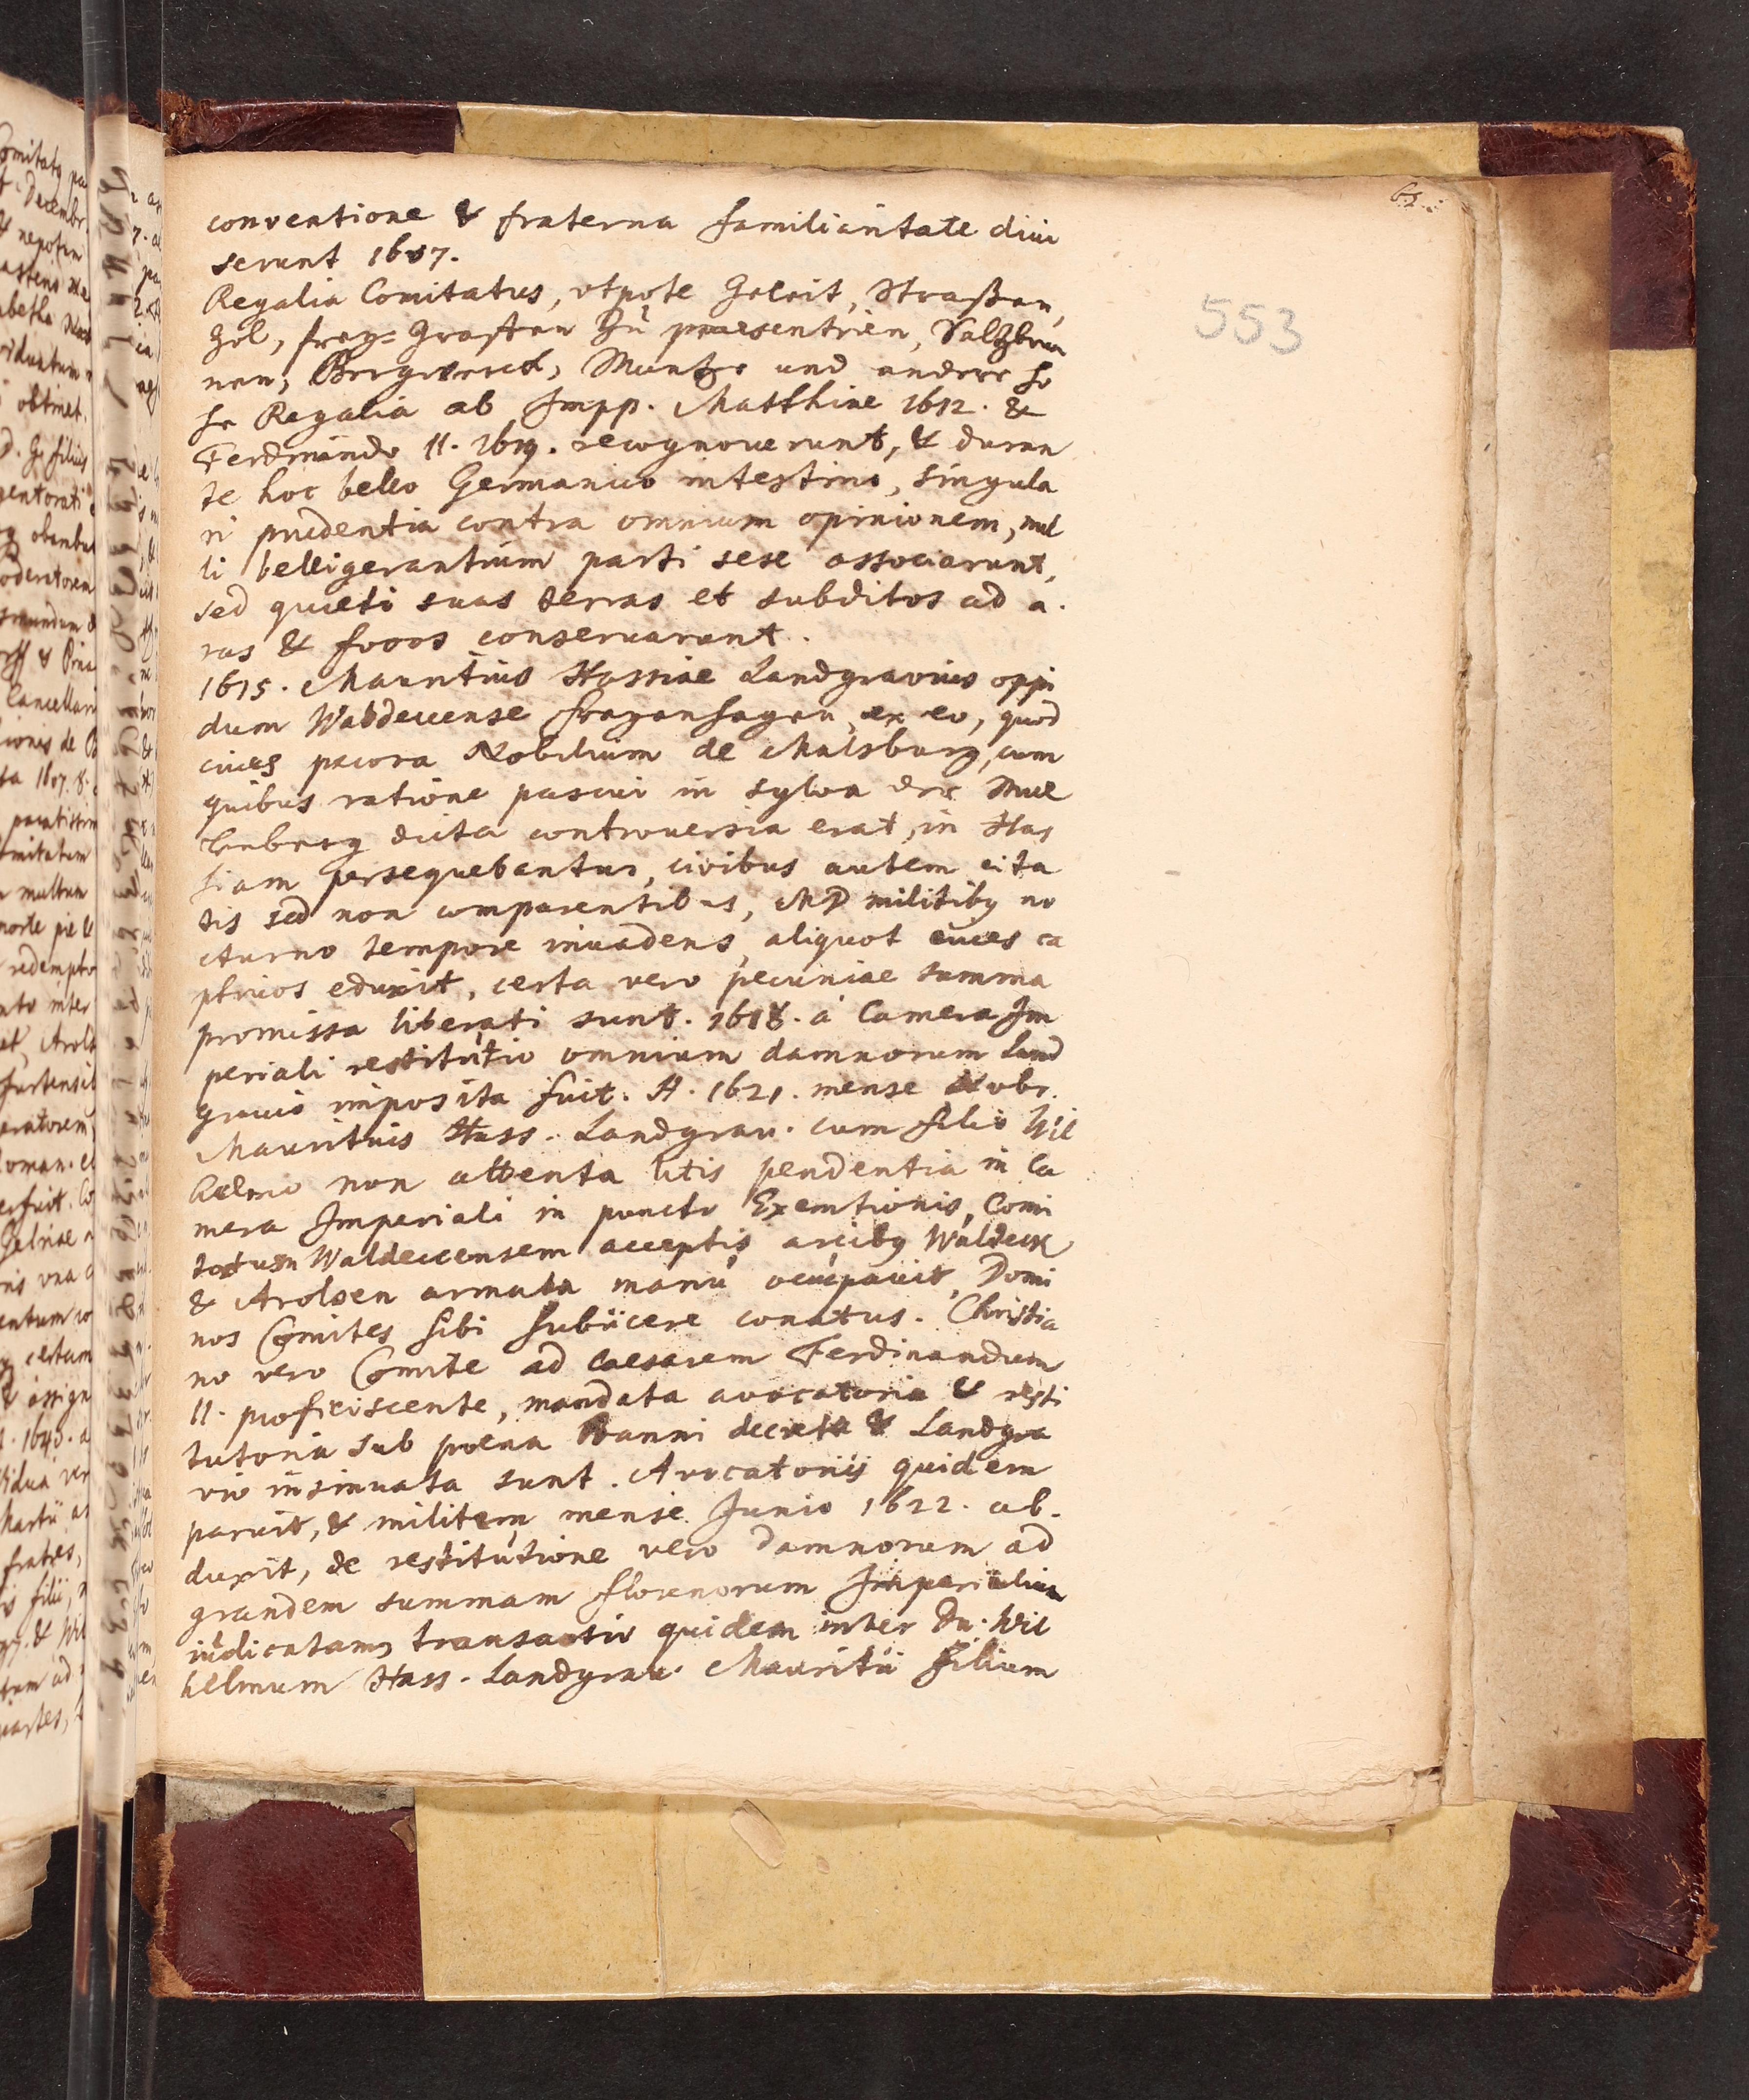 61.
553
conventione & fraterna familiaritate divi
serunt 1607.
Regalia Comitatus, vtpote Geleit, Straßen,
Zol, frey= Grafften zu praesentrien, Saltzbru
nen, Bergwerck, Muntze und andere ho
he Regalia ab Impp. Matthiae 1612. &
Ferdinando II. 1619. recognouerunt, & duran
te hoc bello Germanico intestino, singula
ri prudentia contra omnium opinionem, nul
li belligerantium parti sese associarunt,
sed quieti suas terras et subditos ad a.
ras & focos conseruarunt.
1615. Mauritius Hassiae Landgravius oppi
dum Waldeccense Freyenhagen, ex eo, quod
ciues pecora Nobilium de Malsburg, cum
quibus ratione pascui in sylva der
dicta controuersia erat, in Has
siam persequebantur, civibus autem cita
tis sed non comparentibus, MD militibg no
cturno tempore inuadens, aliquot ciues ca
ptivos eduxit, certa vero pecuniae summa
promissa liberati sunt. 1618. à Camera Im
periali restitutio omnium damnorum Land
gravio imposita fuit. A. 1621. mense Nobr.
Mauritius Hass. Landgrau. cum filio Wil
helmo non attenta litis pendentia in Ca
mera Imperiali in puncto Exemtionis, Comi
tatum Waldeccensem acceptis arcibg Waldeck
& Arolsen armata manu occupauit, Domi
nos Comites sibi subiicere conatus. Christia
no vero Comite ad Caesarem Ferdinandum
II. proficiscente, mandata avocatoria & resti
tutoria sub poena Banni decreta & Landgra
vio insinuata sunt. Avocatoriis quidem
paruit, & militem mense Junio 1622. ab.
duxit, de restitutione vero damnorum ad
grandem summam florenorum Imperialium
iudicatam, transactio quidem inter Dn. Wil
helmum Hass. Landgrau. Mauritii Filium